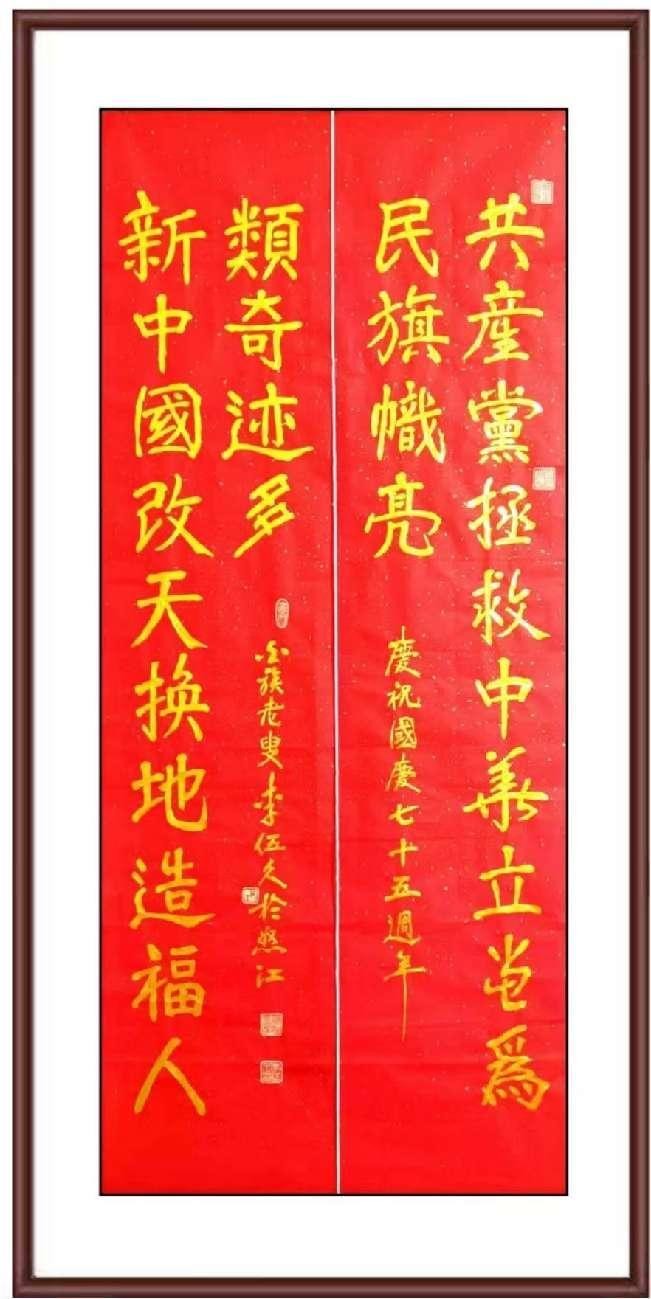 共産黨拯救中華立党爲
民旗幟亮
慶祝國慶七十五週年
新中國改天换地造福人
類奇迹多
族老叟李伍久於怒江